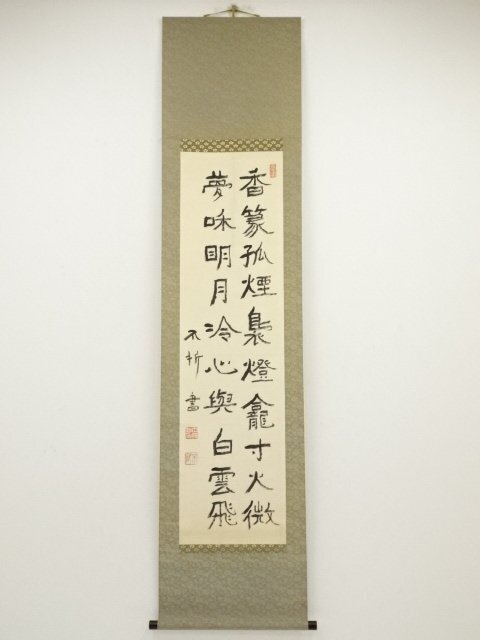 香篆孤煙裊燈龕寸火微
夢咊明月冷心與白雲飛
不折書